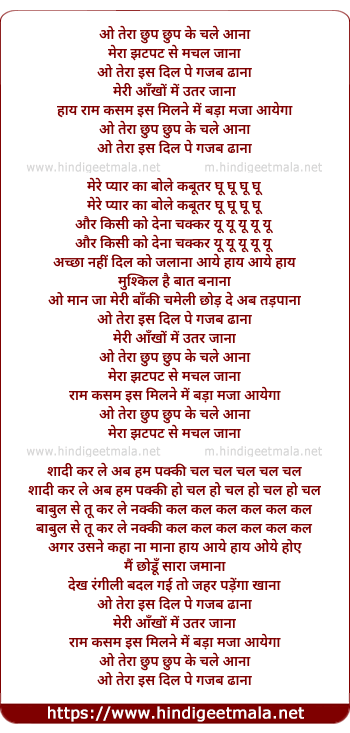 ओ तेरा छुप छुप के चले आना
मेरा झटपट से मचल जाना
ओ तेरा इस दिल पे गजब ढाना
मेरी आँखों में उतर जाना
हाय राम कसम इस मिलने में बड़ा मजा आयेगा
ओ तेरा छुप छुप के चले आना
ओ तेरा इस दिल पे गजब ढाना
www.hindigeetmala.net m.hindigeetmala.net
मेरे प्यार का बोले कबूतर घू घू घू घू
मेरे प्यार का बोले कबूतर घू घू घू घू
और किसी को देना चक्कर यू यू यू यू यू
और किसी को देना चक्कर यू यू यू यू यू
अच्छा नहीं दिल को जलाना आये हाय आये हाय
मुश्किल है बात बनाना
ओ मान जा मेरी बाँकी चमेली छोड़ दे अब तड़पाना
ओ तेरा इस दिल पे गजब ढाना
मेरी आँखों में उतर जाना
ओ तेरा छुप छुप के चले आना
मेरा झटपट से मचल जाना
राम कसम इस मिलने में बड़ा मजा आयेगा
ओ तेरा छुप छुप के चले आना
मेरा झटपट से मचल जाना
www.hindigeetmala.net m.hindigeetmala.net
शादी कर ले अब हम पक्की चल चल चल चल चल
शादी कर ले अब हम पक्की हो चल हो चल हो चल हो चल
बाबुल से तू कर ले नक्की कल कल कल कल कल कल
बाबुल से तू कर ले नक्की कल कल कल कल कल कल
अगर उसने कहा ना माना हाय आये हाय ओये होए
मैं छोडूँ सारा जमाना
देख रंगीली बदल गई तो जहर पड़ेंगा खाना
ओ तेरा इस दिल पे गजब ढाना
मेरी आँखों में उतर जाना
राम कसम इस मिलने में बड़ा मजा आयेगा
ओ तेरा छुप छुप के चले आना
ओ तेरा इस दिल पे गजब ढाना
https://www.hindigeetmala.net